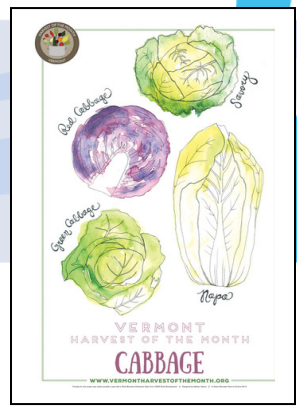 Savory
Red Cabbage
Green Cabbage
Napa
VERMONT
HARVEST OF THE MONTH
CABBAGE
WWW.VERMONTHARVESTOFTHEMONTH.ORG